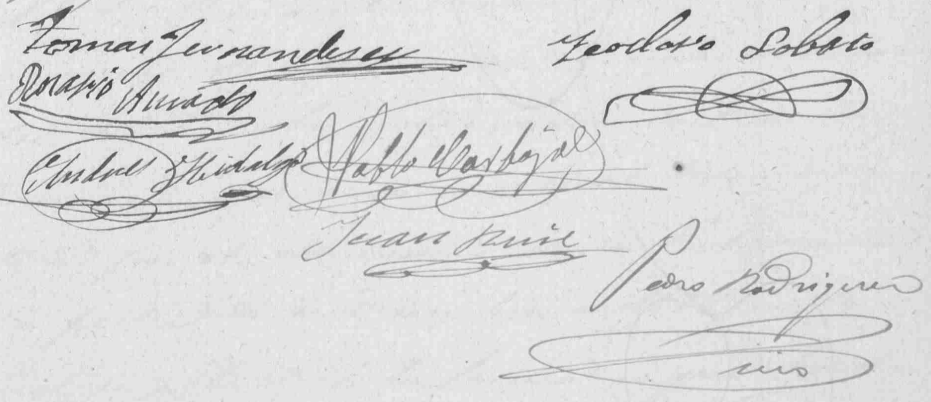 Tomas Fernandez
Teodosio Lobato
Horasio Amado
Andres Hidalgo
Pablo Carbajal
Juan Ruiz
Pedro Rodriguez